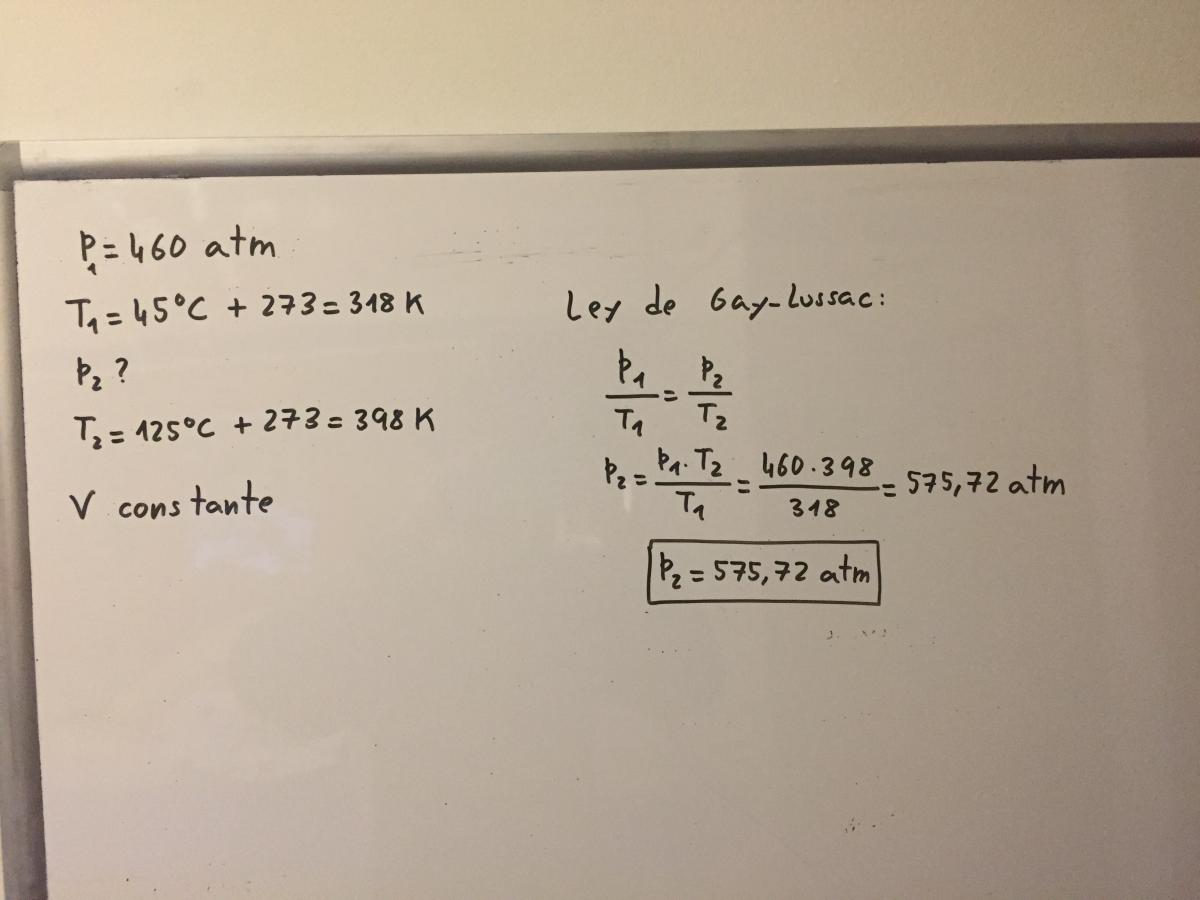 P₁ = 460 atm
T₁ = 45°C + 273 = 318 K
P₂ ?
T₂ = 125°C + 273 = 398 K
V constante
Ley de Gay-Lussac:
P₁/T₁ = P₂/T₂
P₂ = P₁·T₂/T₁ = 460·398/318 = 575,72 atm
P₂ = 575,72 atm